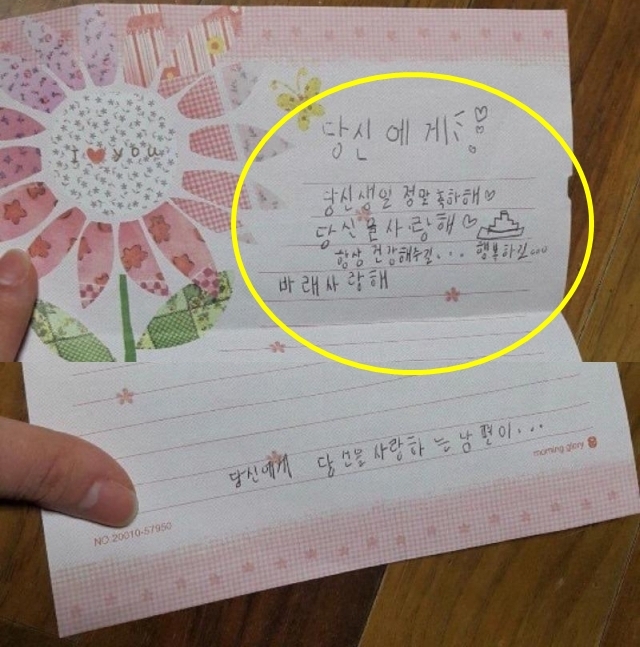 I ♥ you
당신에게 ♡♡♡
당신생일 정말 축하해♡
당신을사랑해♡
항상 건강해주길... 행복하길...
바래사랑해
당신에게 당신을사랑하는남편이...
morning glory
NO.20010-57950